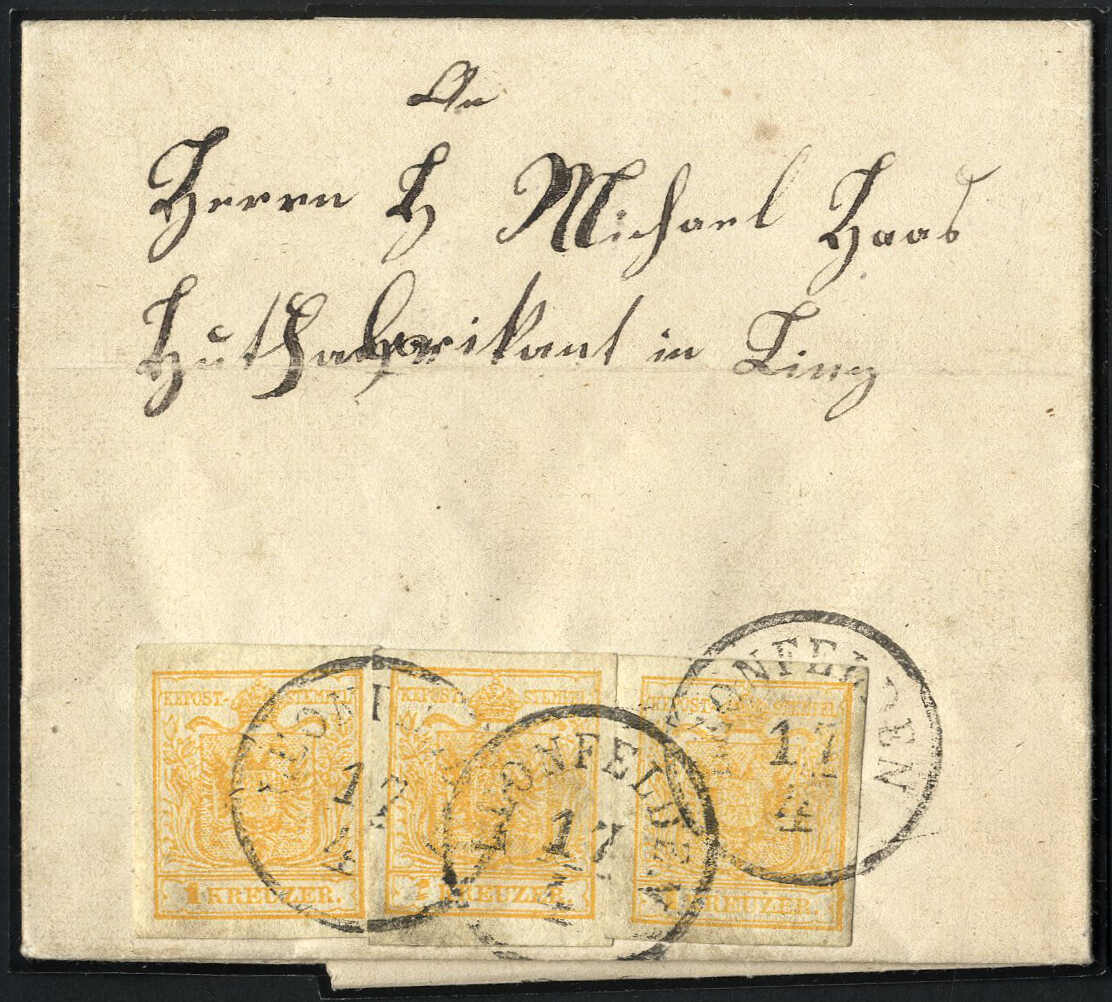 An
Herrn H Michael Haas
Hutfabrikant in Linz
KKPOST-STEMPEL
KKPOST-STEMPEL
KKPOST-STEMPEL
1 KREUZER.
1 KREUZER.
1 KREUZER.
LEONFELDEN
17
4
LEONFELDEN
17
4
LEONFELDEN
17
4